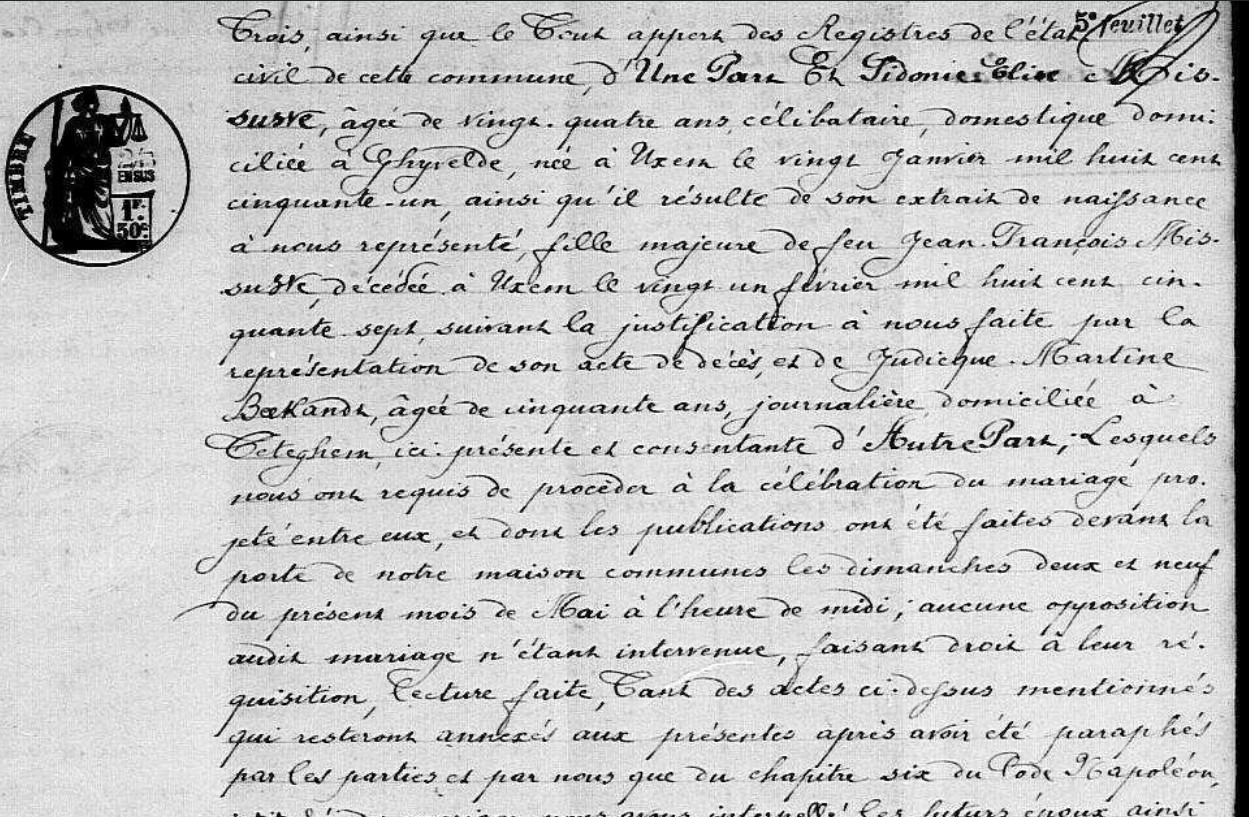 5e feuillet
Trois, ainsi que le Tout appert des Registres de l'état
civil de cette commune, d'Une Part Et Sidonie Elise Mis-
suwe, âgée de vingt-quatre ans, célibataire, domestique domi-
ciliée à Ghyvelde, née à Uxem le vingt Janvier mil huit cent
cinquante-un, ainsi qu'il résulte de son extrait de naissance
à nous représenté, fille majeure de feu Jean-François Mis-
suwe, décédée à Uxem le vingt un février mil huit cent cin-
quante sept, suivant la justification à nous faite par la
représentation de son acte de décès, et de Judicque Martine
âgée de cinquante ans, journalière domiciliée à
Téteghem, ici présente et consentante d'Autre Part; Lesquels
nous ont requis de procéder à la célébration du mariage pro-
jeté entre eux, et dont les publications ont été faites devant la
porte de notre maison communes les dimanches deux et neuf
du présent mois de Mai à l'heure de midi; aucune opposition
audit mariage n'étant intervenue, faisant droit à leur ré-
quisition, Lecture faite, Tant des actes ci-dessus mentionnés
qui resteront annexés aux présentes après avoir été paraphés
par les parties et par nous que du chapitre six du Code Napoléon,
nous avons interpellé les futurs époux ainsi
TIMBRE
EN SUS
1F.
50c.